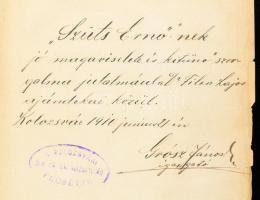 „Szűts Ernő”-nek
jó magaviselete és kitünő szor-
galma jutalmául Tilen Lajos
ajándékai közül.
Kolozsvár 1911 junius hó
Grósz János
igazgató
KOLOZSVÁRI